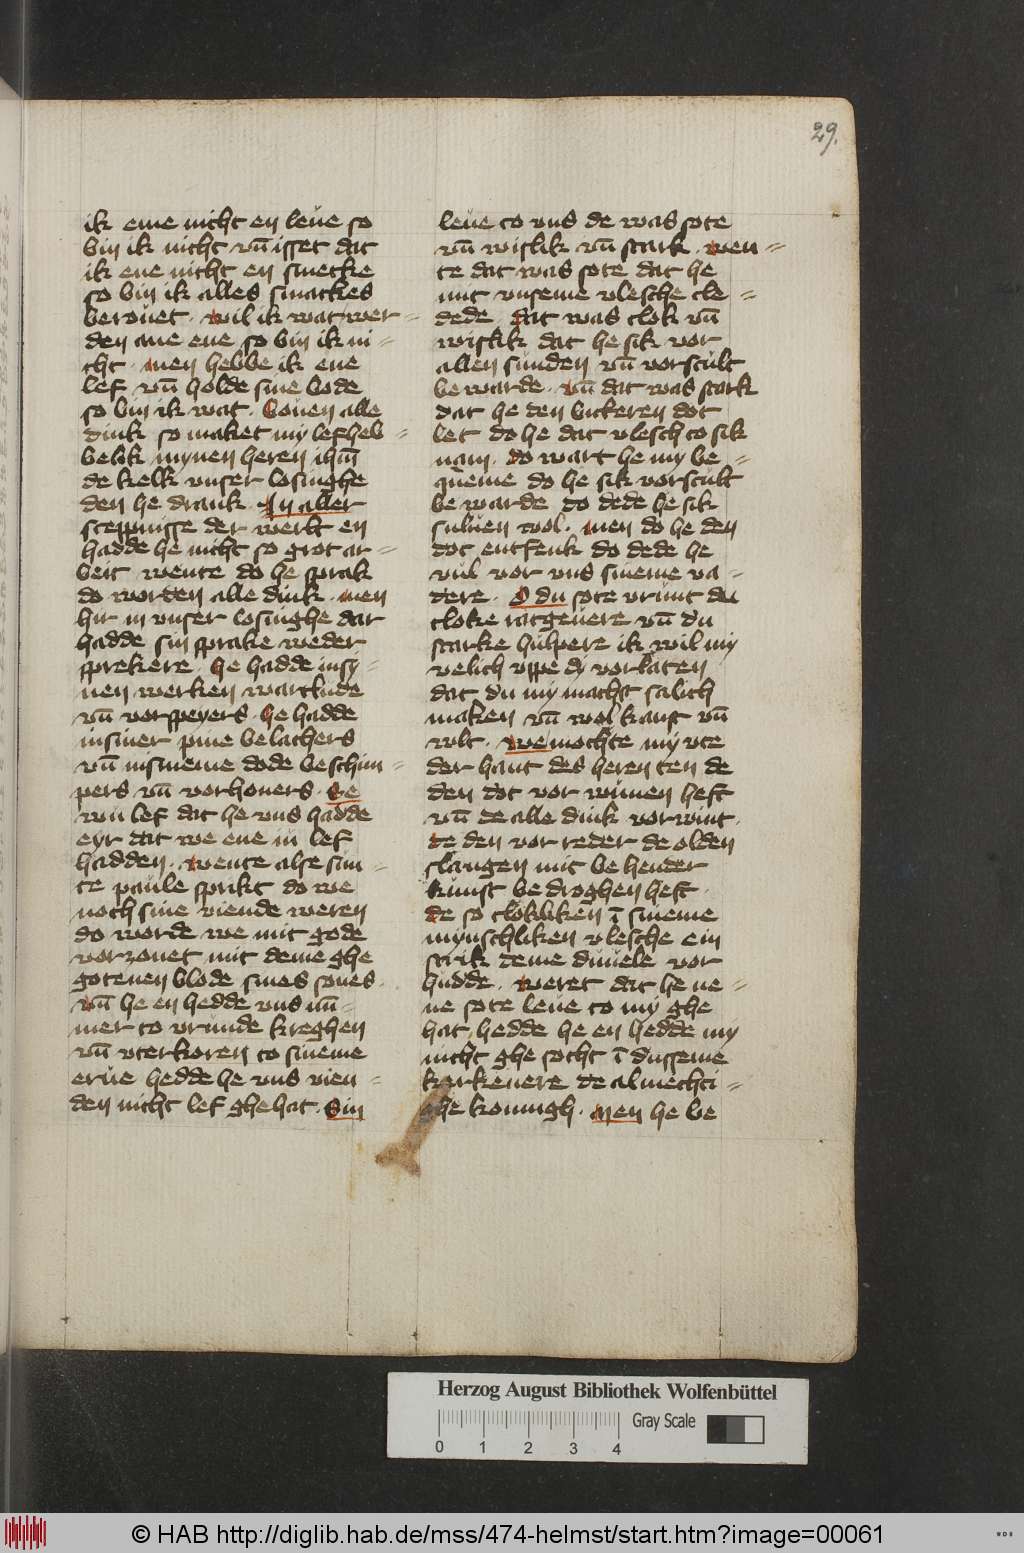 29.
ik eme nicht en leue so
bin ik nicht vn̄ isset dat
ik ene nicht en smecke
so bin ik alles smackes
berouet · wil ik wat wer=
den ane ene so bin ik ni=
cht · men hebbe ik ene
lef vn̄ holde sine bode
so bin ik wat · bouen alle
dink so maket my lefheb=
belik mynen heren ihm̄
de kelk vnser losinghe
den he drank · In aller
sceppnisse der werlt en
hadde he nicht so grot ar=
beit wente do he sprak
do worden alle dink · men
hir in vnser losinghe dar
hadde sin sprake weder
sprekere · he hadde in sy=
nen werken wartlude
vn̄ vorspeyers · he hadde
in siner pine belachers
vn̄ in sineme dode beschim=
pers vn̄ vorhoners · Se
wu lef dat he vns hadde
eyr dat we ene in lef
hadden · wente alse sun=
te paule sprikt do we
noch sine viende weren
do worde we mit gode
vorzonet mit deme ghe
gotenen blode sines sones ·
vn̄ he en hedde vns nū=
mer to vrunde kreghen
vn̄ vterkoren to sineme
erue hedde he vns vien=
den nicht lef ghe hat · Sin
leue to vns de was sote
vn̄ wislik vn̄ stark · wen=
te dat was sote dat he
mit vnseme vlesche cle=
dede · dat was clok vn̄
wislik dat he sik vor
allen sunden vn̄ vorscult
bewarde · vn̄ dat was stark
dat he den bitteren dot
let do he dat vlesch to sik
nam · do wart he my be=
queme do he sik vorscult
be warde do dede he sik
suluen wol · men do he den
dot entfenk do dede he
vul vor vns sineme va=
dere · O du sote vrunt du
cloke ratgeuere vn̄ du
starke hulpere ik wil my
velich vppe dy vorlaten
dat du my machst salich
maken vn̄ wol kanst vn̄
wlt · we mochte my vte
der hant des heren ten de
den dot vor wunnen heft
vn̄ de alle dink vorwint ·
de den vor reder de olden
slangen mit be hender
kunst be droghen heft ·
de so clokliken ī sineme
mynschliken vlesche ein
strik deme duuele vor
hudde · weret dat he ne=
ne sote leue to my ghe
hat hedde he en hedde my
nicht ghe socht ī dusseme
karkenere de almechti=
ghe konnigh · men he be
Herzog August Bibliothek Wolfenbüttel
Gray Scale
0 1 2 3 4
© HAB http://diglib.hab.de/mss/474-helmst/start.htm?image=00061